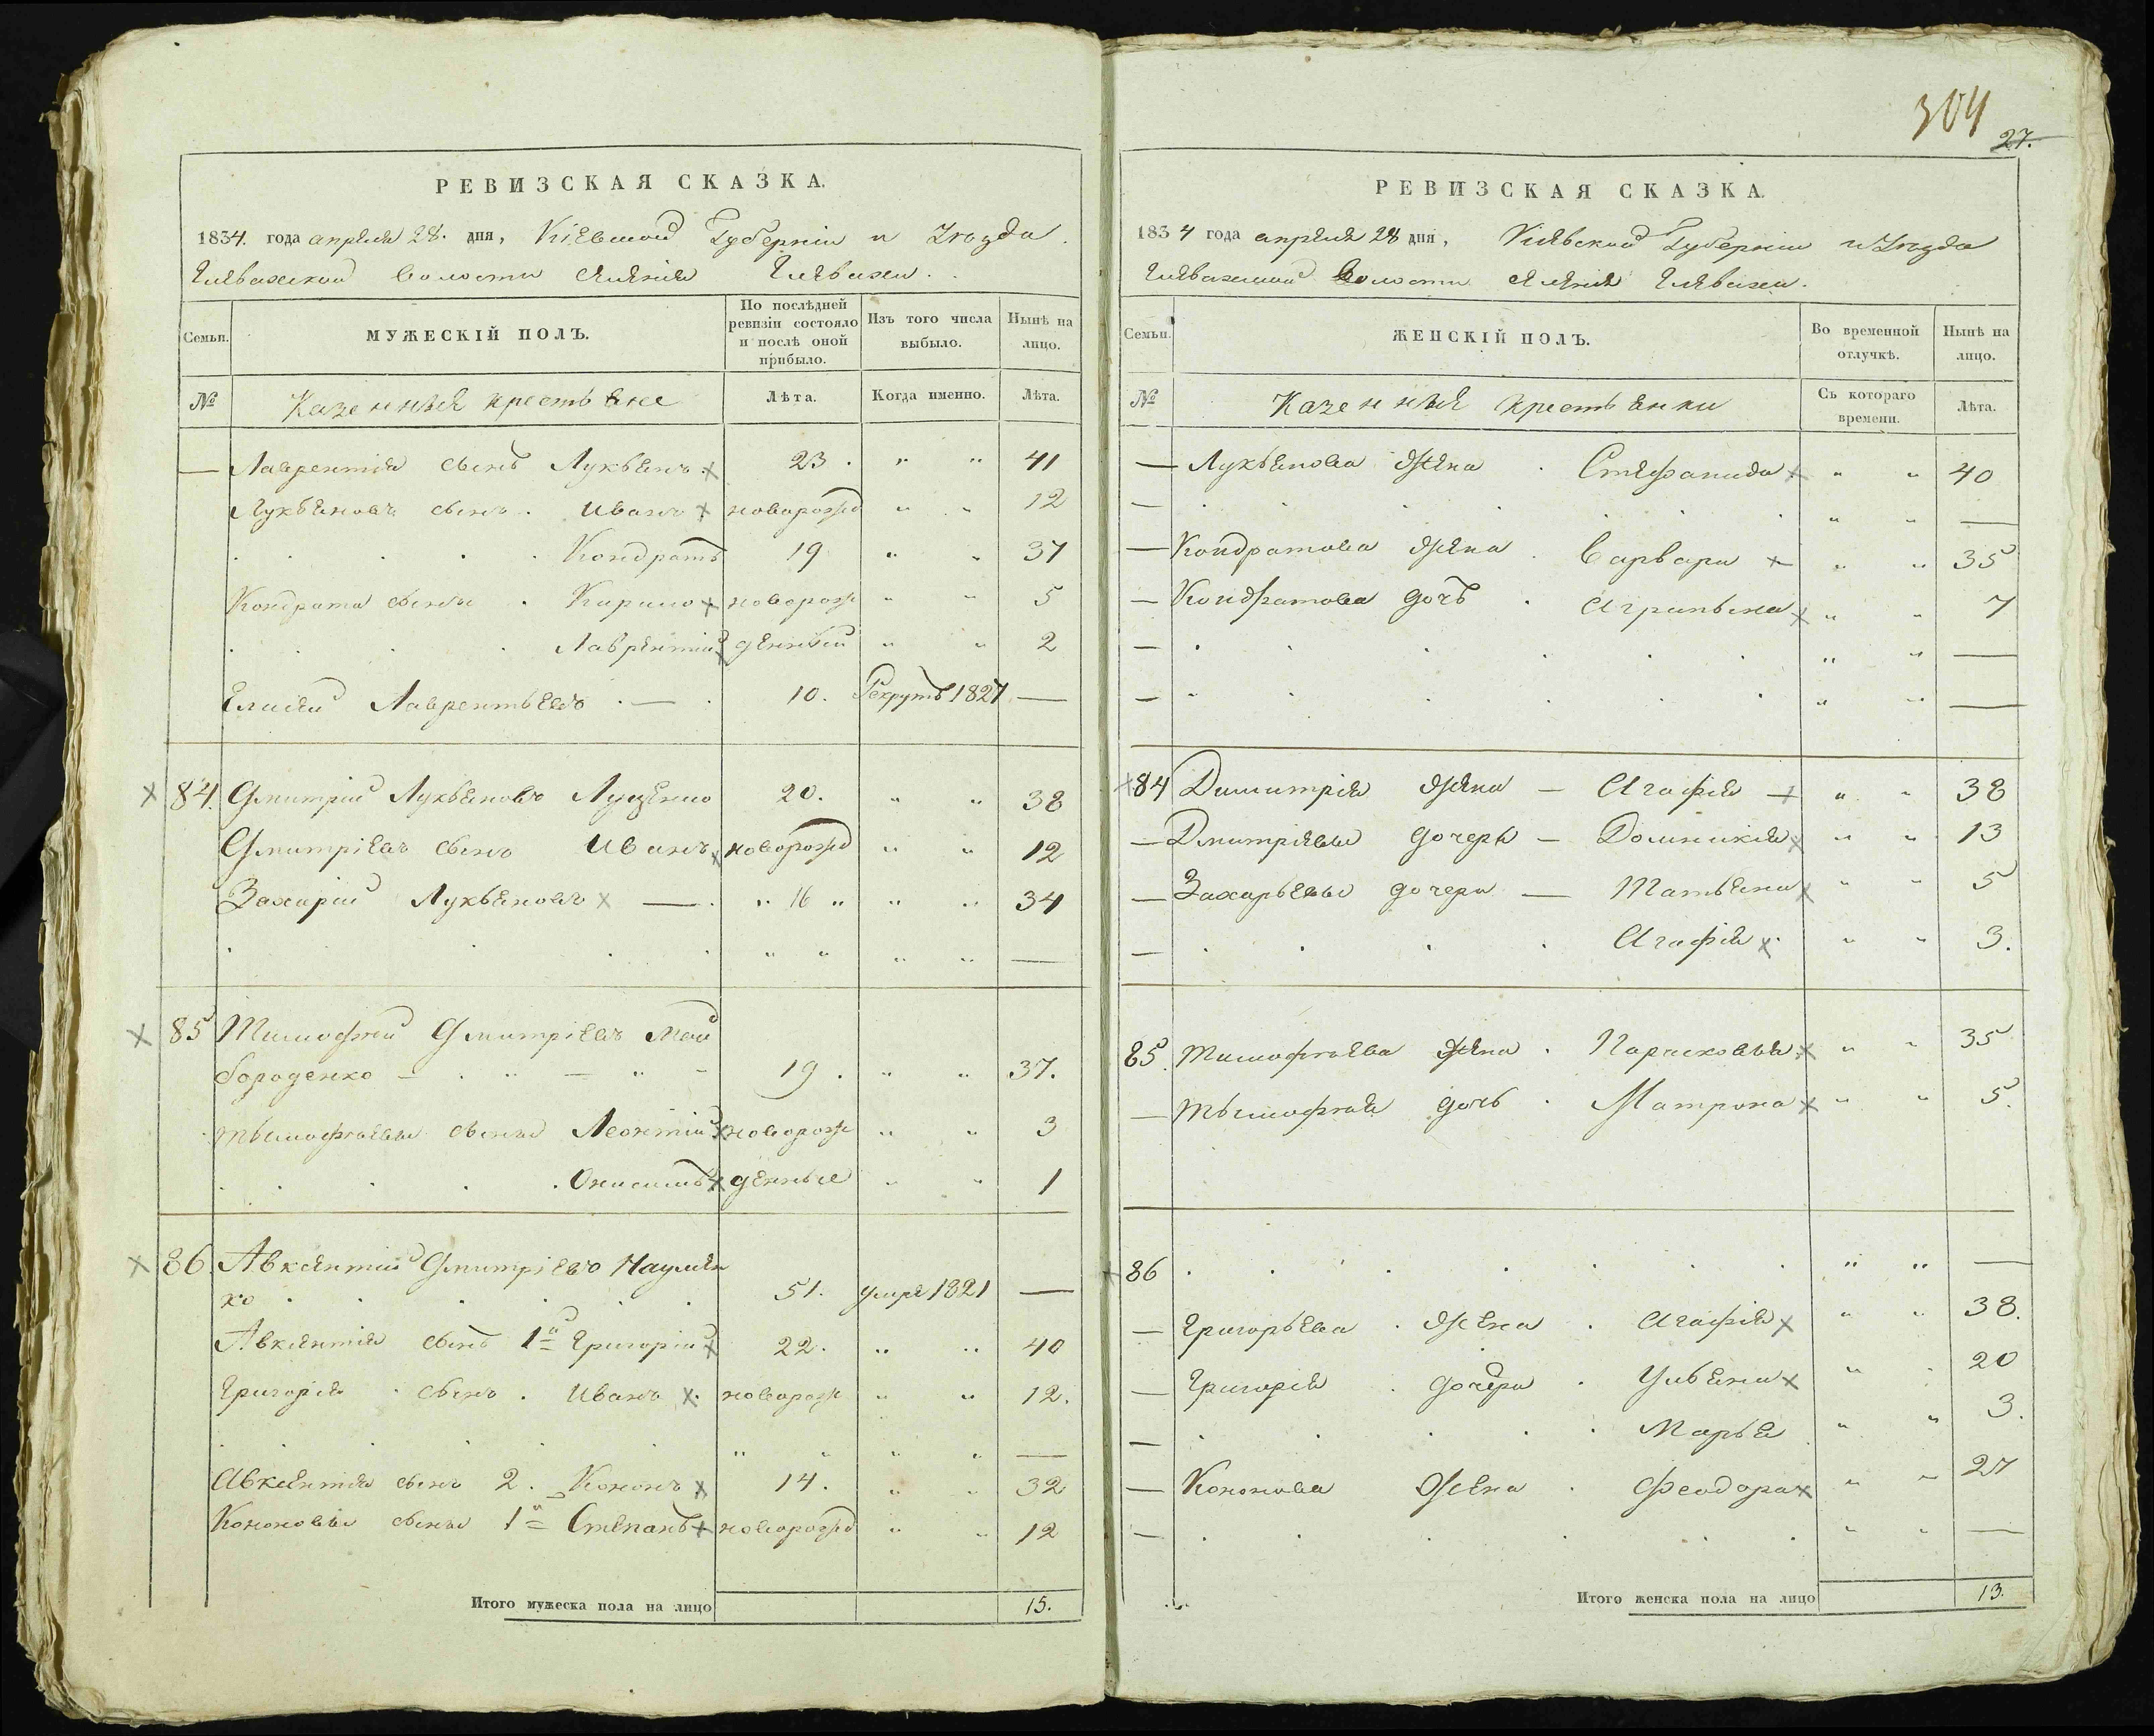 РЕВИЗСКАЯ СКАЗКА.
1834. года апреля 28. дня, Кіевской Губерніи и Уезда.
Глевахской Волости Селенія Глевахи.
Семьи.
МУЖЕСКІЙ ПОЛЪ.
По послѣдней ревизіи состояло и послѣ оной прибыло.
Изъ того числа выбыло.
Нынѣ на лицо.
№
Казенныя крестьяне
Лѣта.
Когда именно.
Лѣта.
— Лаврентія сынъ Лукьянъ × 23. " " 41
Лукьяновъ сынъ. Иванъ × новорожд " " 12
Кондратъ 19 " " 37
Кондрата сынъ. Кирило × новорож " " 5
Лаврентій × денный " " 2
Елисей Лаврентьевъ. — . 10. Рекрутъ 1827 —
× 84. Дмитрій Лукьяновъ Луценко 20. " " 38
Дмитріевъ сынъ Иванъ × новорожд " " 12
Захарій Лукьяновъ × — . " 16 " " " 34
" " " " —
× 85 Тимофей Дмитріевъ Май
бороденко — . " — " – 19. " " 37.
тымофѣевы сыны Леонтій × новорож " " 3
Онисимъ × денные " " 1
× 86. Авксентій Дмитріевъ Наумен
ко 51. умре 1821 —
Авксентія сынъ 1й Григорій × 22. " " 40
Григорія. сынъ. Иванъ × новорож " " 12.
" " " " —
Авксентія сынъ 2. Кононъ × 14. " " 32
Кононовы сыны 1й Степанъ × новорожд " " 12
Итого мужеска пола на лицо 15.
304
27.
РЕВИЗСКАЯ СКАЗКА.
1834 года апреля 28 дня, Кіевской Губерніи и Уезда
Глевахской Волости Селенія Глевахи.
Семьи.
ЖЕНСКІЙ ПОЛЪ.
Во временной отлучкѣ.
Нынѣ на лицо.
№
Казенныя крестьянки
Съ котораго времени.
Лѣта.
— Лукьянова жена. Стефанида × " " 40
— " " —
— Кондратова жена. Варвара × " " 35
— Кондратова дочь. Агрипьена × " " 7
— " " —
— " " —
× 84 Димитрія жена — Агафія × " " 38
— Дмитріевы дочери — Домникія × " " 13
— Захарьевы дочери — Татьяна × " " 5
— Агафія × " " 3.
85. тимофѣева жена. Парасковья × " " 35
— тымофѣя дочь. Матрона × " " 5.
86 " " —
— Григорьева. жена. Агафія × " " 38.
— Григорія. дочери. Ульяна × " . 20
— Марья " " 3.
— Кононова жена. Феодора × " " 27
— " " —
Итого женска пола на лицо 13.